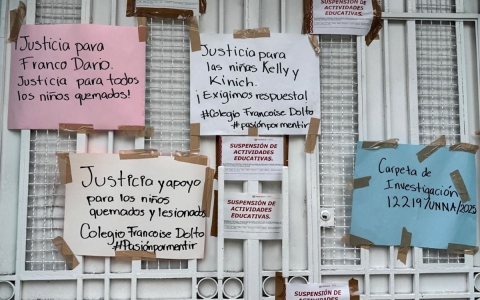 ¡Justicia para
Franco Darío.
Justicia para todos
los niños quemados!
Justicia para
las niñas Kelly y
Kinich.
¡Exigimos respuesta!
#Colegio Franco Dolto
#pasiónpormentir
SUSPENSIÓN DE
ACTIVIDADES
EDUCATIVAS.
Justicia y apoyo
para los niños
quemados y lesionados
Colegio Franco Dolto
#Pasiónpormentir
SUSPENSIÓN DE
ACTIVIDADES EDUCATIVAS.
SUSPENSIÓN DE
ACTIVIDADES EDUCATIVAS.
Carpeta de
Investigación
122197/UNNA/2025
SUSPENSIÓN DE
ACTIVIDADES EDUCATIVAS.